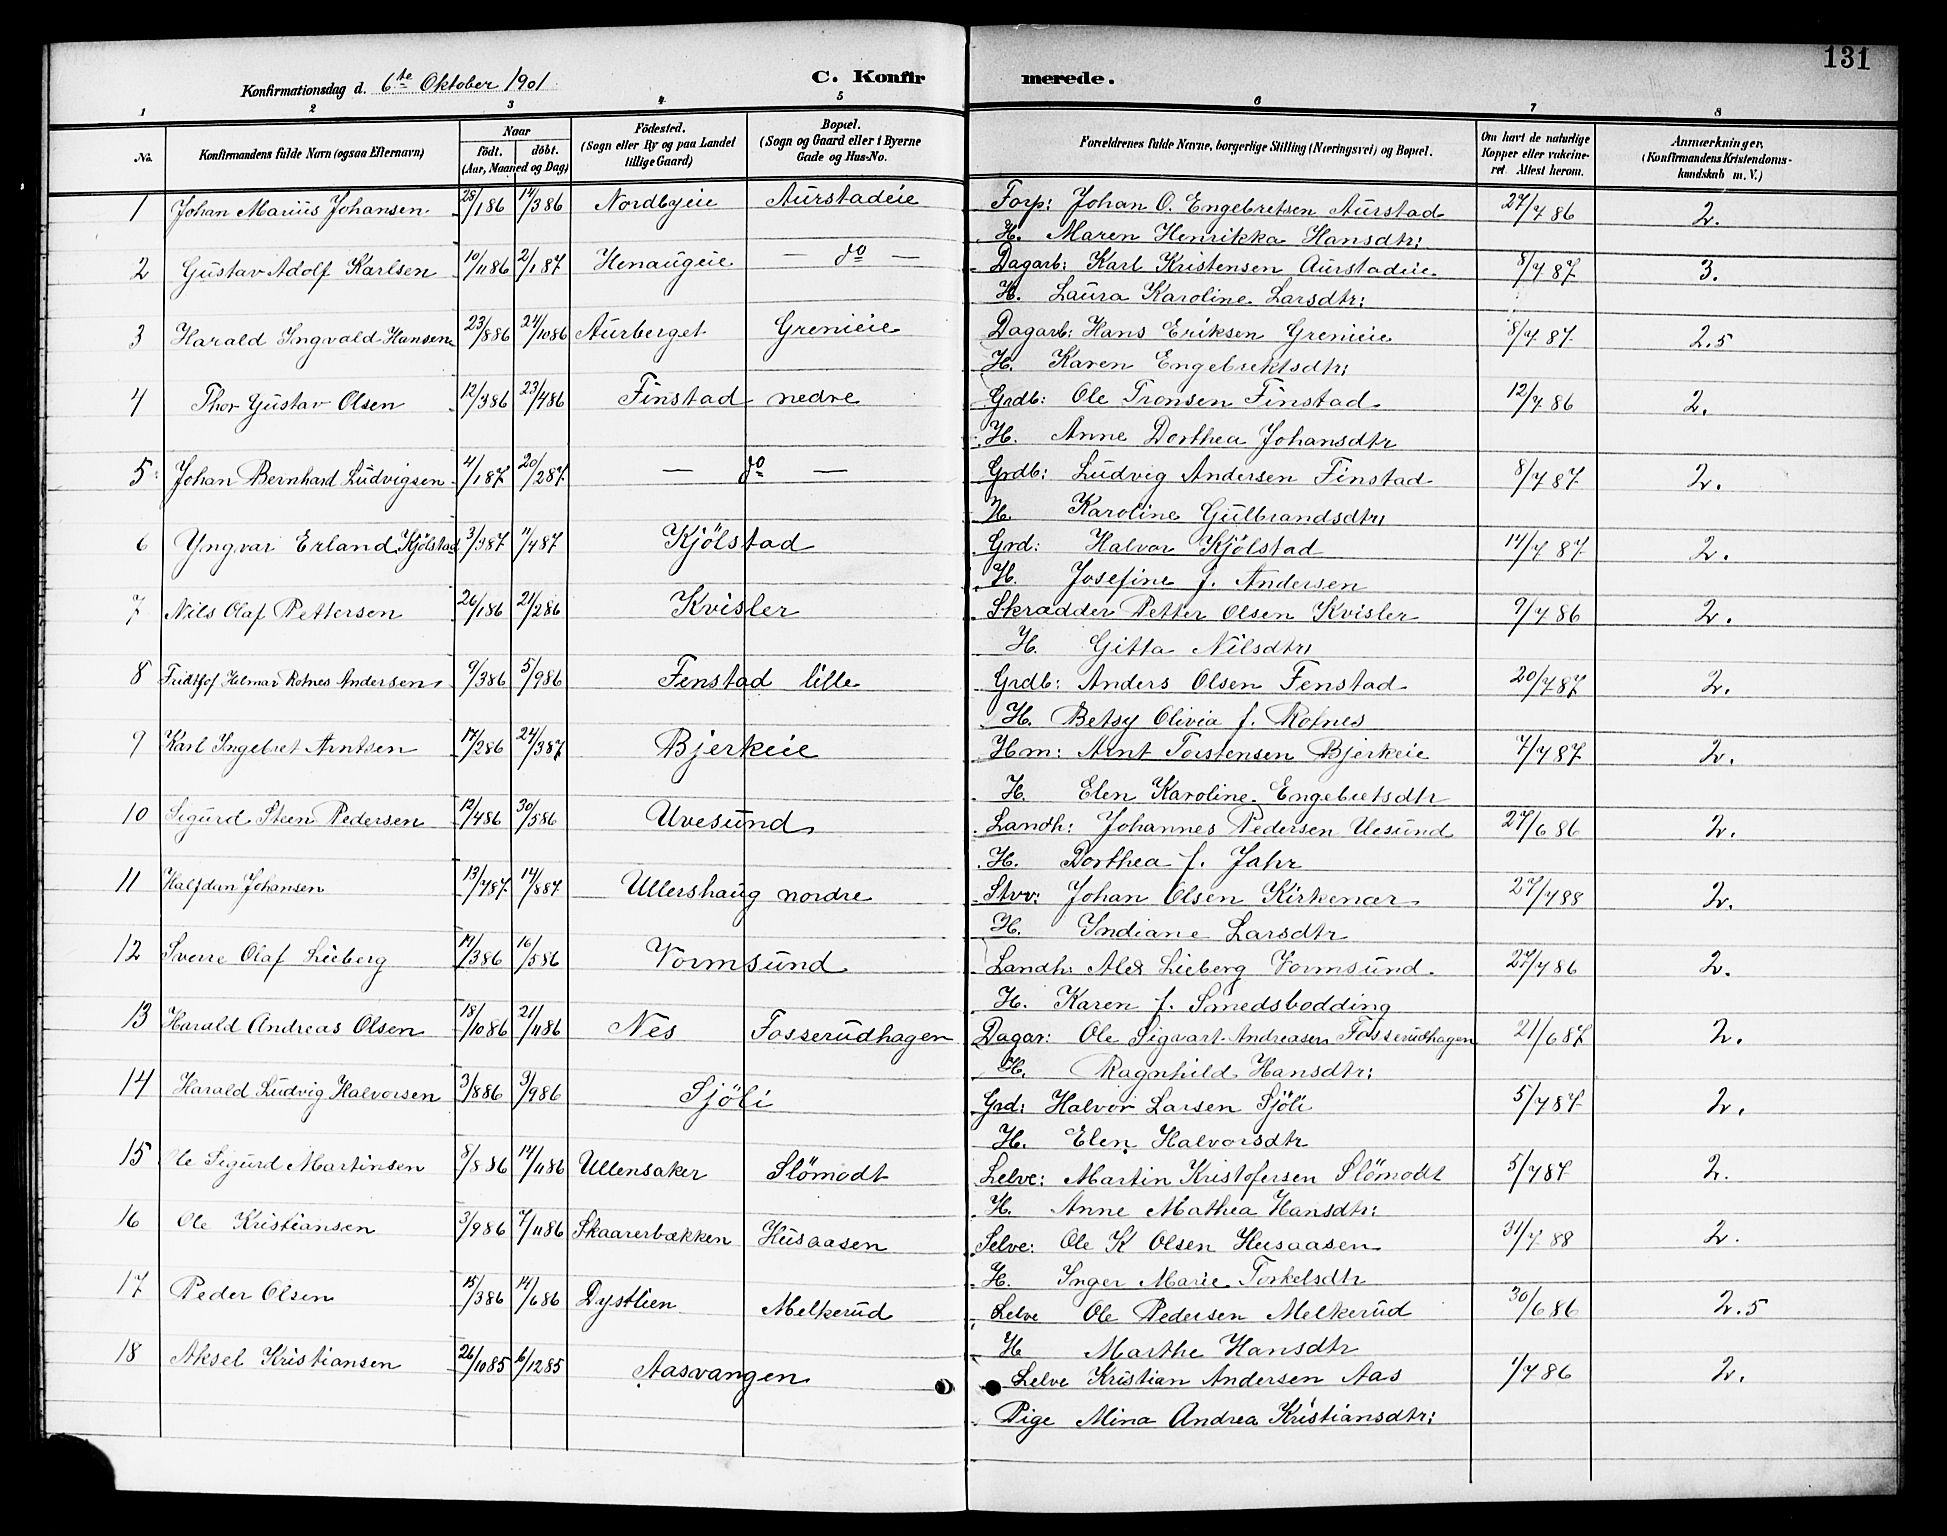 131
Konfirmationsdag d. 6te Oktober 1901
C. Konfirmerede.
1 2 3 4 5 6 7 8
No.
Konfirmandens fulde Navn (ogsaa Efternavn)
Naar
födt. döbt.
(Aar, Maaned og Dag)
Födested.
(Sogn eller By og paa Landet
tillige Gaard)
Bopæl.
(Sogn og Gaard eller i Byerne
Gade og Hus-No.
Forældrenes fulde Navne, borgerlige Stilling (Næringsvei) og Bopæl.
Om havt de naturlige
Kopper eller vakcine-
ret. Attest herom.
Anmærkninger.
(Konfirmandens Kristendoms-
kundskab m. V.)
1 Johan Marius Johansen 28/1 86 14/3 86 Nordbyeie Aurstadeie Forp: Johan O. Engebretsen Aurstad 27/7 86 2.
H. Maren Henrikka Hansdtr:
2 Gustav Adolf Karlsen 10/11 86 2/1 87 Henaugeie — do — Dagarb: Karl Kristensen Aurstadeie 8/7 87 3.
H. Laura Karoline Larsdtr:
3 Harald Ingvald Hansen 23/8 86 24/10 86 Aurberget Grenieie Dagarb: Hans Eriksen Grenieie 8/7 87 2.5
H. Karen Engebrektsdtr:
4 Thor Gustav Olsen 12/3 86 23/4 86 Finstad nedre Grdb: Ole Tronsen Finstad 12/7 86 2.
H. Anne Dorthea Johansdtr
5 Johan Bernhard Ludvigsen 4/1 87 20/2 87 — do — Grdb: Ludvig Andersen Finstad 8/7 87 2.
H. Karoline Gulbrandsdtr:
6 Yngvar Erland Kjölstad 3/3 87 11/4 87 Kjölstad Grd: Halvor Kjölstad 14/7 87 2.
H. Josefine f. Andersen
7 Nils Olaf Pettersen 26/1 86 21/2 86 Kvisler Skrædder Petter Olsen Kvisler 9/7 86 2.
H. Gitta Nilsdtr:
8 Fridtjof Helmar Rotnes Andersen 9/3 86 5/9 86 Fenstad lille Grdb: Anders Olsen Fenstad 20/7 87 2.
H. Betsy Olivia f. Rotnes
9 Karl Ingebret Arntsen 17/2 86 24/3 87 Bjerkeie Hm: Arnt Torstensen Bjerkeie 7/7 87 2.
H. Elen Karoline Engebretsdtr
10 Sigurd Steen Pedersen 12/4 86 30/5 86 Uvesund Landh: Johannes Pedersen Uesund 27/6 86 2.
H. Dorthea f. Jahr
11 Halfdan Johansen 13/7 87 14/8 87 Ullershaug nordre Stvv: Johan Olsen Kirkenær 27/7 88 2.
H. Indiane Larsdtr
12 Sverre Olaf Lieberg 19/3 86 16/5 86 Vormsund Landh: Alex Lieberg Vormsund 27/7 86 2.
H. Karen f. Smedsbodding
13 Harald Andreas Olsen 18/10 86 21/11 86 Nes Fosserudhagen Dagar: Ole Sigvart Andreasen Fosserudhagen 21/6 87 2.
H. Ragnhild Hansdtr:
14 Harald Ludvig Halvorsen 3/8 86 3/9 86 Sjöli Grd: Halvor Larsen Sjöli 5/7 87 2.
H. Elen Halvorsdtr
15 Ole Sigurd Martinsen 8/8 86 14/11 86 Ullensaker Slömodt Selve: Martin Kristofersen Slömodt 5/7 87 2.
H. Anne Mathea Hansdtr:
16 Ole Kristiansen 3/9 86 7/11 86 Skaarerbækken Husaasen Selve: Ole K Olsen Husaasen 31/7 88 2.
H. Inger Marie Torkelsdtr
17 Peder Olsen 15/3 86 14/6 86 Dystlien Melkerud Selve Ole Pedersen Melkerud 30/6 86 2.5
H Marthe Hansdtr
18 Aksel Kristiansen 26/10 85 6/12 85 Aasvangen Selve Kristian Andersen Aas 1/7 86 2.
Pige Mina Andrea Kristiansdtr: